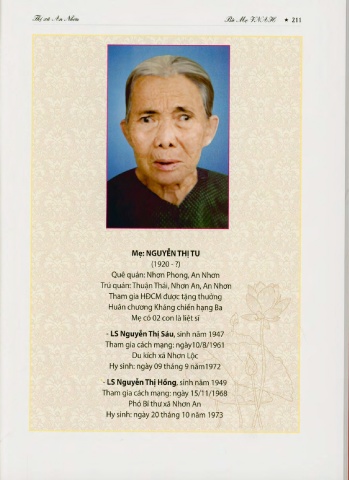 Thị xã An Nhơn
Bà Mẹ V.N.A.H ★ 211
Mẹ: NGUYỄN THỊ TU
(1920 - ?)
Quê quán: Nhơn Phong, An Nhơn
Trú quán: Thuận Thái, Nhơn An, An Nhơn
Tham gia HĐCM được tặng thưởng
Huân chương Kháng chiến hạng Ba
Mẹ có 02 con là liệt sĩ
- LS Nguyễn Thị Sáu, sinh năm 1947
Tham gia cách mạng: ngày10/8/1961
Du kích xã Nhơn Lộc
Hy sinh: ngày 09 tháng 9 năm1972
- LS Nguyễn Thị Hồng, sinh năm 1949
Tham gia cách mạng: ngày 15/11/1968
Phó Bí thư xã Nhơn An
Hy sinh: ngày 20 tháng 10 năm 1973